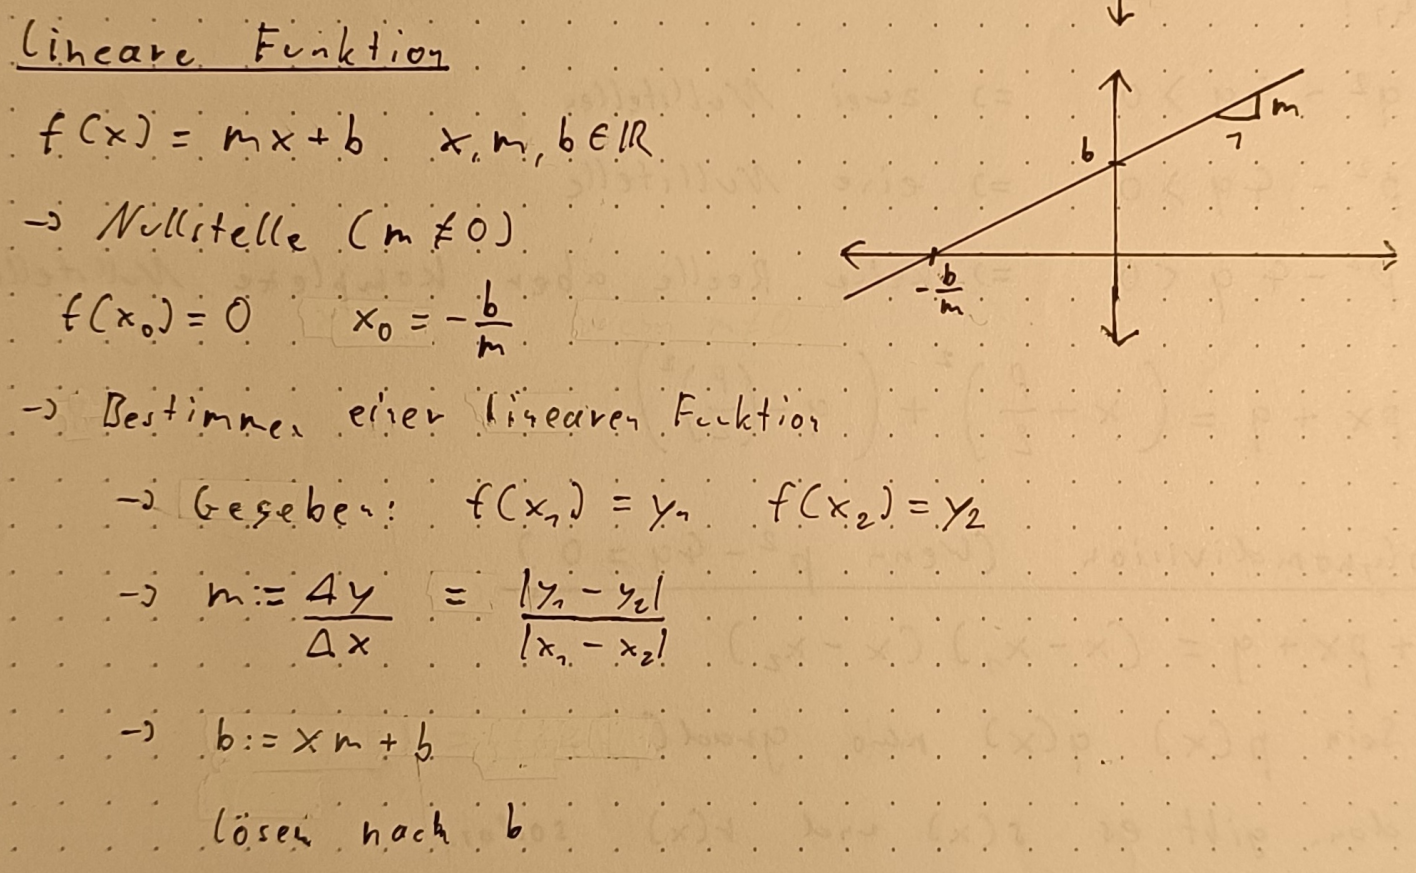 Lineare Funktion
f(x) = mx + b x, m, b ∈ ℝ
-> Nullstelle (m ≠ 0)
f(x₀) = 0 x₀ = -b/m
-> Bestimmen einer linearen Funktion
-> Gegeben: f(x₁) = y₁ f(x₂) = y₂
-> m := Δy/Δx = |y₁ - y₂|/|x₁ - x₂|
-> b := xm + b
lösen nach b
m
1
b
-b/m